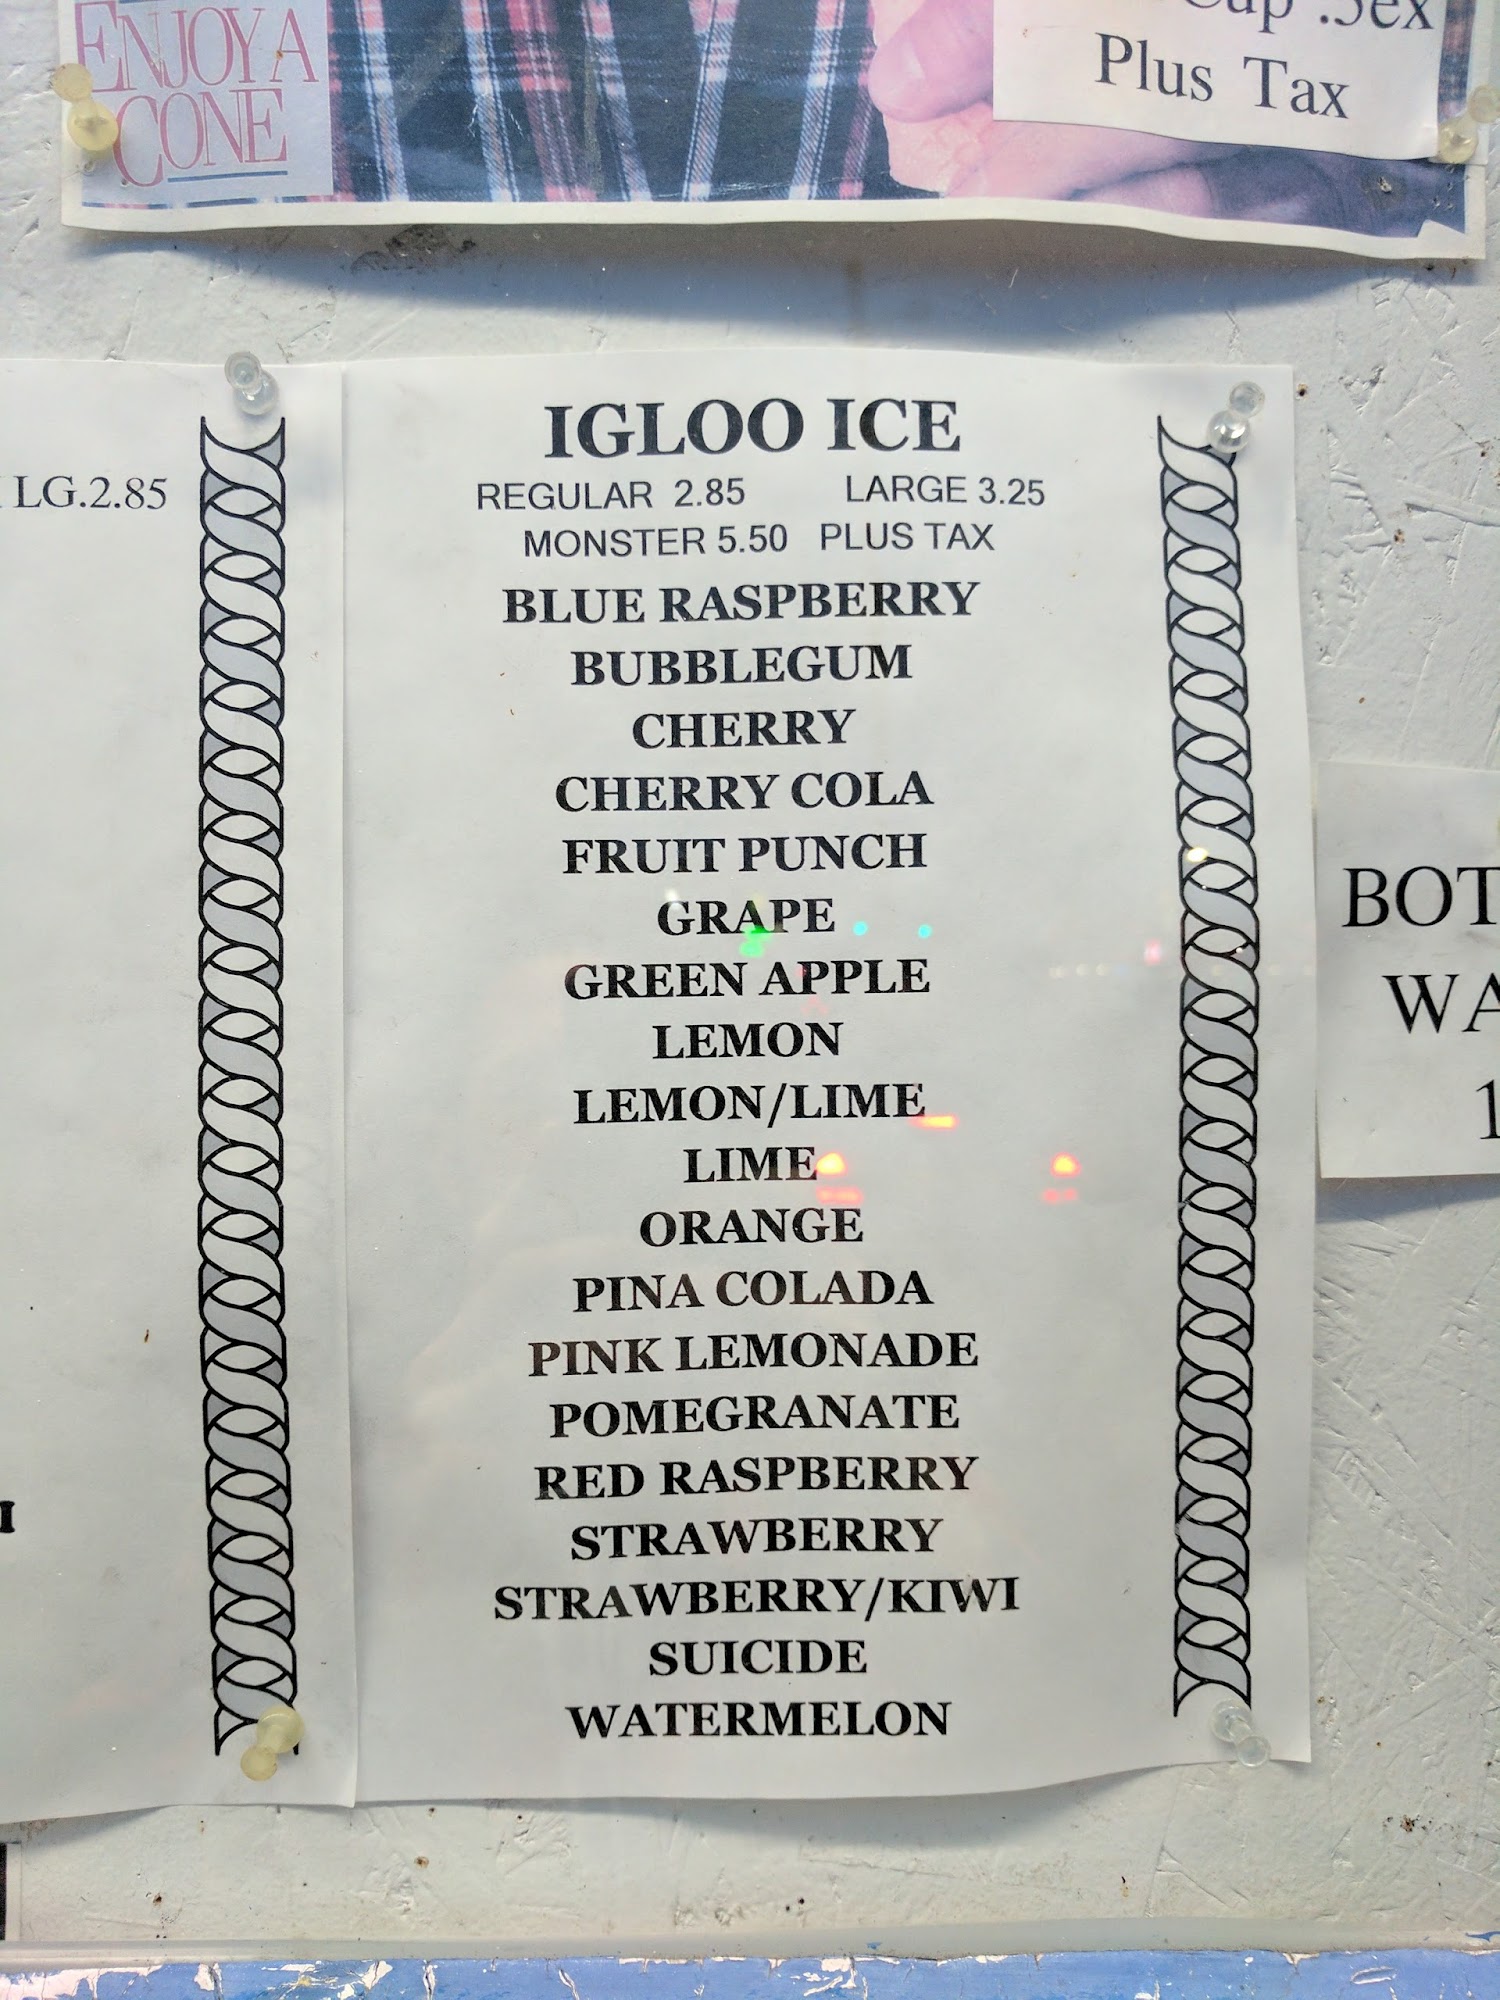 ENJOY A
CONE
Plus Tax
LG.2.85
IGLOO ICE
REGULAR 2.85 LARGE 3.25
MONSTER 5.50 PLUS TAX
BLUE RASPBERRY
BUBBLEGUM
CHERRY
CHERRY COLA
FRUIT PUNCH
GRAPE
GREEN APPLE
LEMON
LEMON/LIME
LIME
ORANGE
PINA COLADA
PINK LEMONADE
POMEGRANATE
RED RASPBERRY
STRAWBERRY
STRAWBERRY/KIWI
SUICIDE
WATERMELON
BOT
WA
1